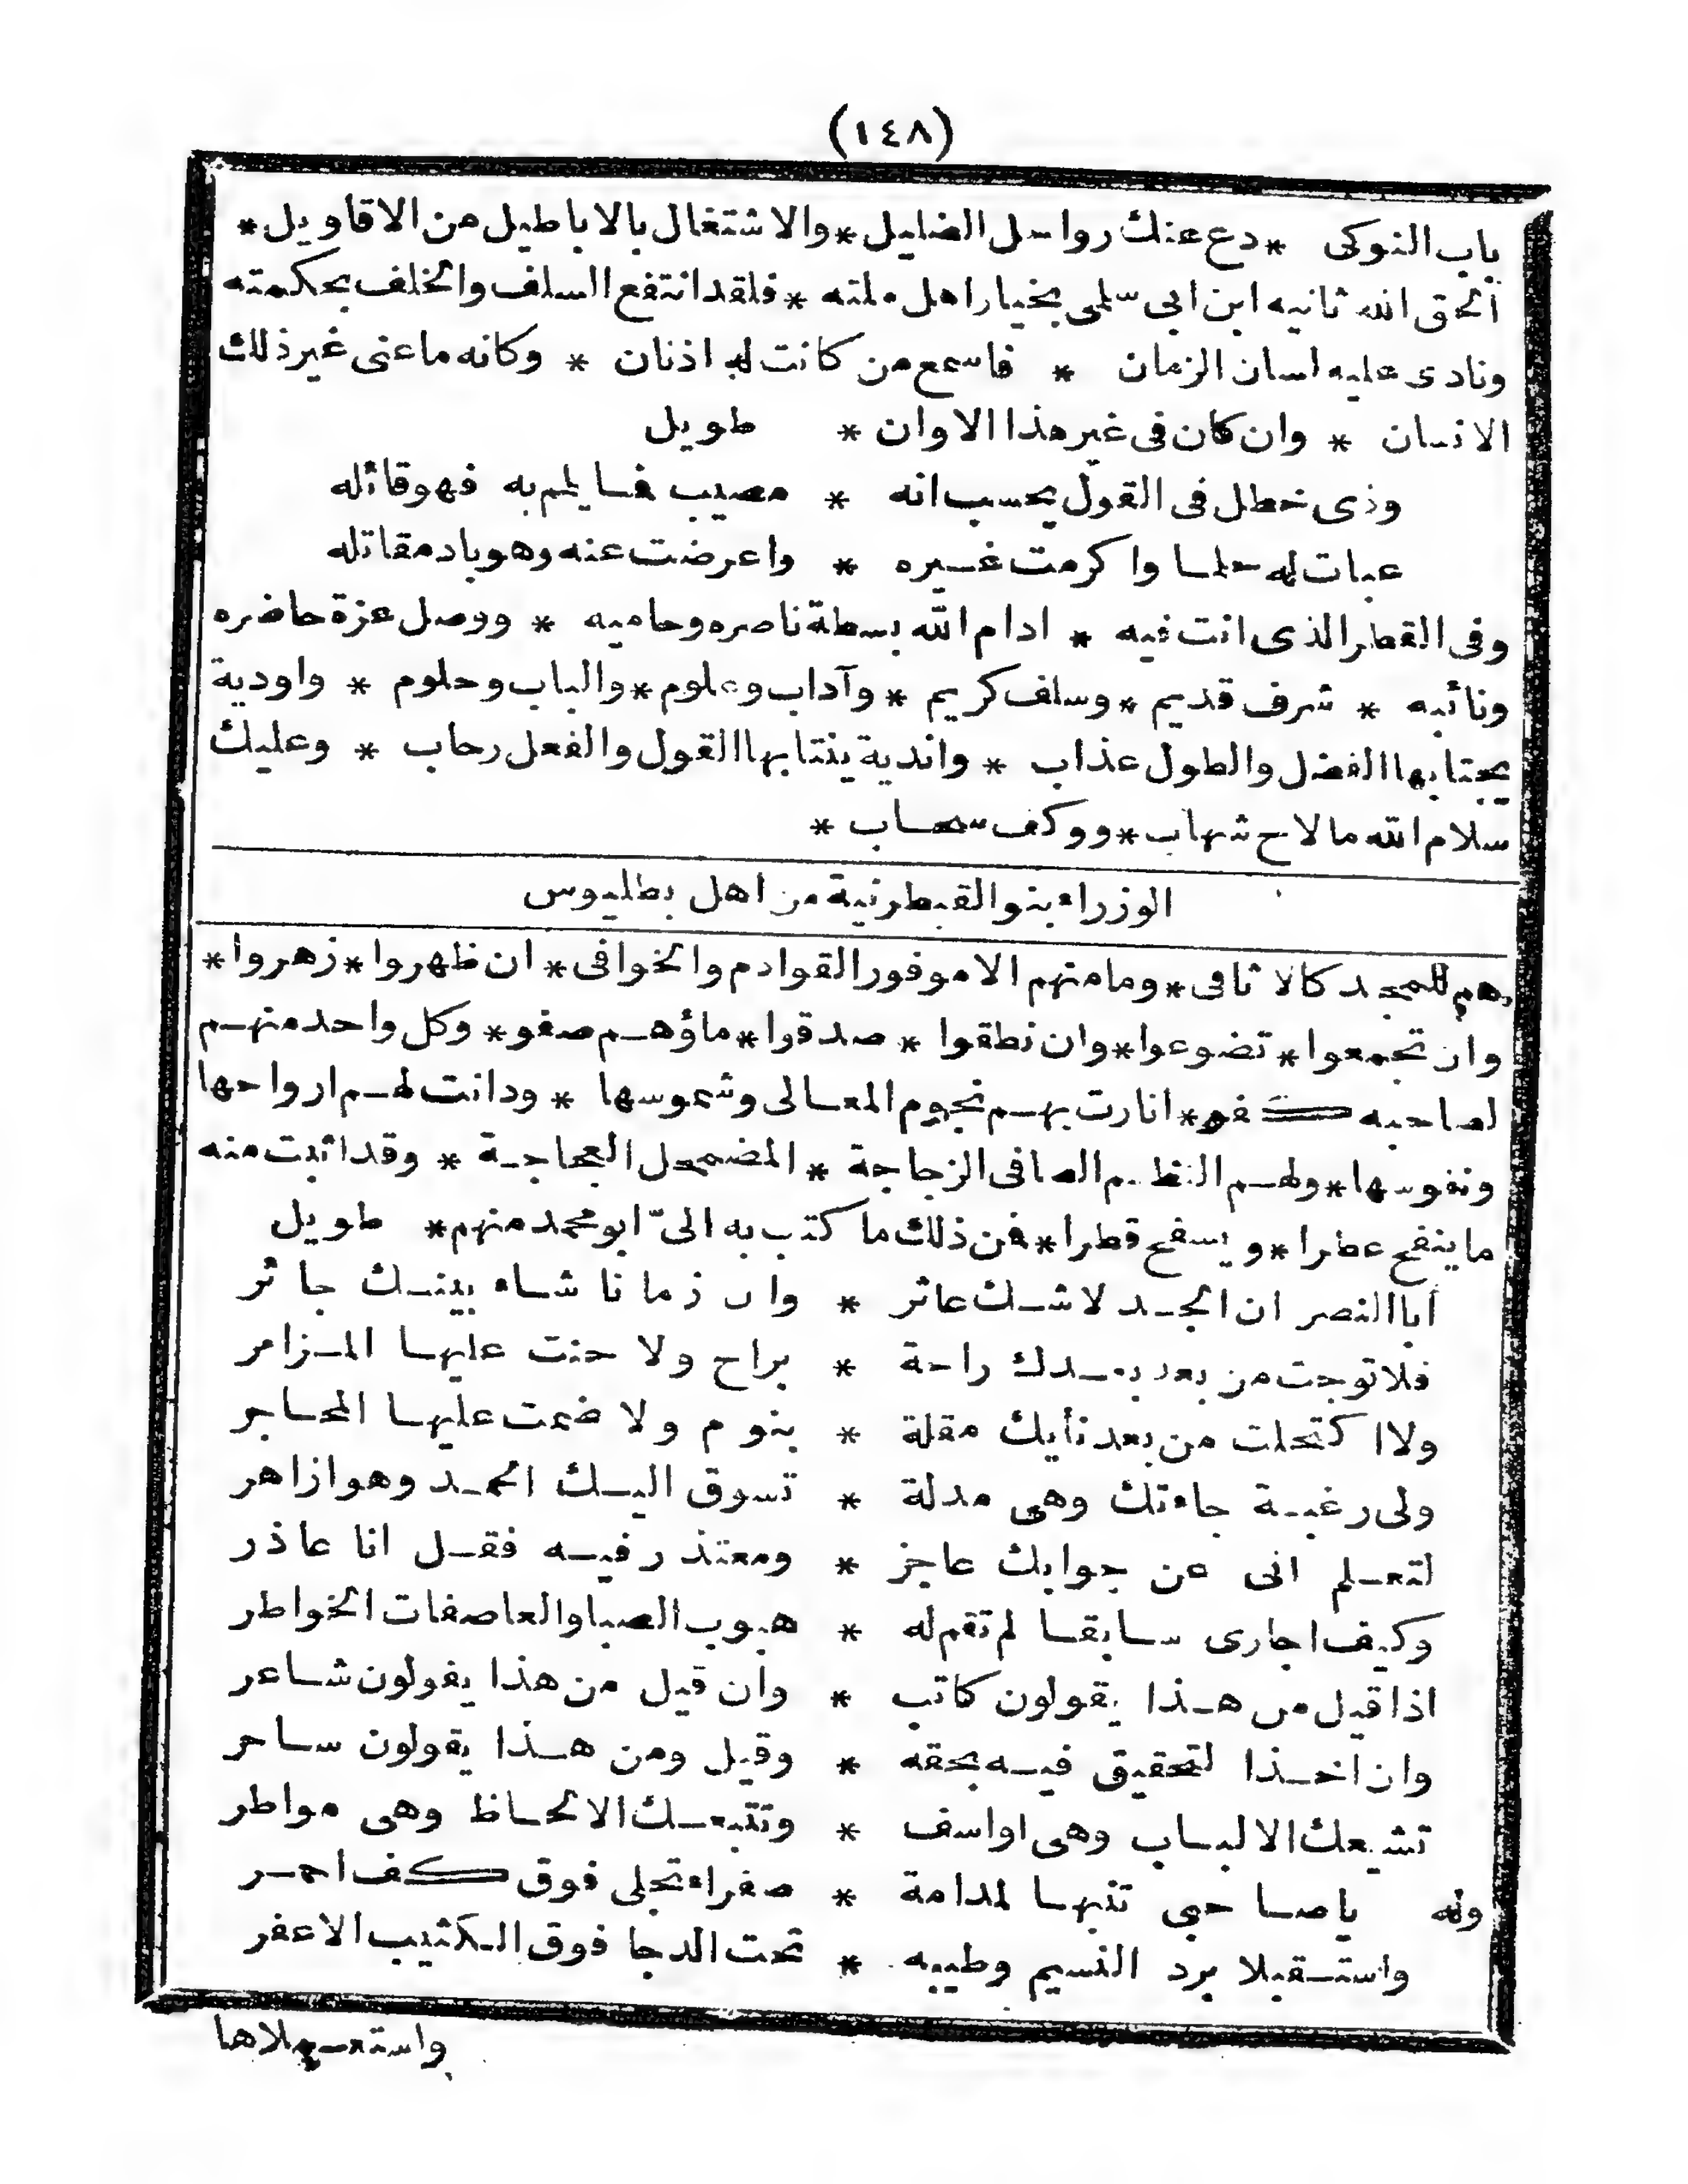 (١٤٨)
باب النوكى * دع عنك رواحل الضليل * والاشتغال بالاباطيل من الاقاويل *
ألحق الله ثانيه ابن ابى سلمى بخيار اهل ملته * فلقد انتفع السلف والخلف بحكمته
ونادى عليه لسان الزمان * فاسمع من كانت له اذنان * وكانه ما عنى غير ذلك
الانسان * وان كان فى غير هذا الاوان * طويل
وذى خطل فى القول يحسب انه * مصيب فما يلمم به فهو قائله
عبات له حلما واكرمت غيره * واعرضت عنه وهو باد مقاتله
وفى القطر الذى انت فيه * ادام الله بسطة ناصره وحاميه * ووصل عزة حاضره
ونائبه * شرف قديم * وسلف كريم * وآداب وعلوم * والباب وحلوم * واودية
يجتابها الفضل والطول عذاب * واندية ينتابها القول والفعل رحاب * وعليك
سلام الله ما لاح شهاب * ووكف سحاب *
الوزراء بنو القبطرنية من اهل بطليوس
هم للمجد كالاثافى * وما منهم الا موفور القوادم والخوافى * ان ظهروا * زهروا *
وان تجمعوا * تضوعوا * وان نطقوا * صدقوا * ماؤهم صفو * وكل واحد منهم
لصاحبه كفو * انارت بهم نجوم المعالى وشموسها * ودانت لهم ارواحها
ونفوسها * ولهم النظم الصافى الزجاجة * المضمحل العجاجة * وقد اثبت منه
ما ينفح عطرا * ويسفح قطرا * فمن ذلك ما كتب به الىّ ابو محمد منهم * طويل
أبا النصر ان الجد لا شك عاثر * وان زمانا شاء بينك جائر
فلا توجت من بعد بعدك راحة * براح ولا حنت عليها المزامر
ولا اكتحلت من بعد نأيك مقلة * بنوم ولا ضمت عليها المحاجر
ولى رغبة جاءتك وهى مدلة * تسوق اليك الحمد وهو ازاهر
لتعلم انى عن جوابك عاجز * ومعتذر فيه فقل انا عاذر
وكيف اجارى سابقا لم تقم له * هبوب الصبا والعاصفات الخواطر
اذا قيل من هذا يقولون كاتب * وان قيل من هذا يقولون شاعر
وان اخذا لتحقيق فيه بحقه * وقيل ومن هذا يقولون ساحر
تشيعك الالباب وهى اواسف * وتتبعك الالحاظ وهى مواطر
وله يا صاحبى تنبها لمدامة * صفراء تجلى فوق كف احمر
واستقبلا برد النسيم وطيبه * تحت الدجا فوق الكثيب الاعفر
واستعملاها